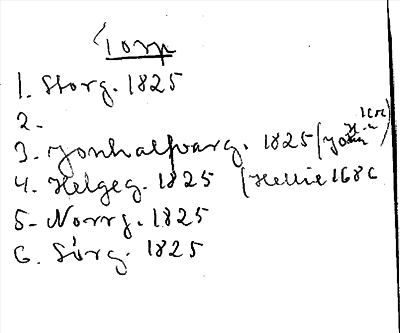 Torp
1. Storg. 1825
2.
3. Jonhalfvarg. 1825 (
4. Helgeg. 1825 (Hellie 1686
5- Norrg. 1825
6. Sörg. 1825